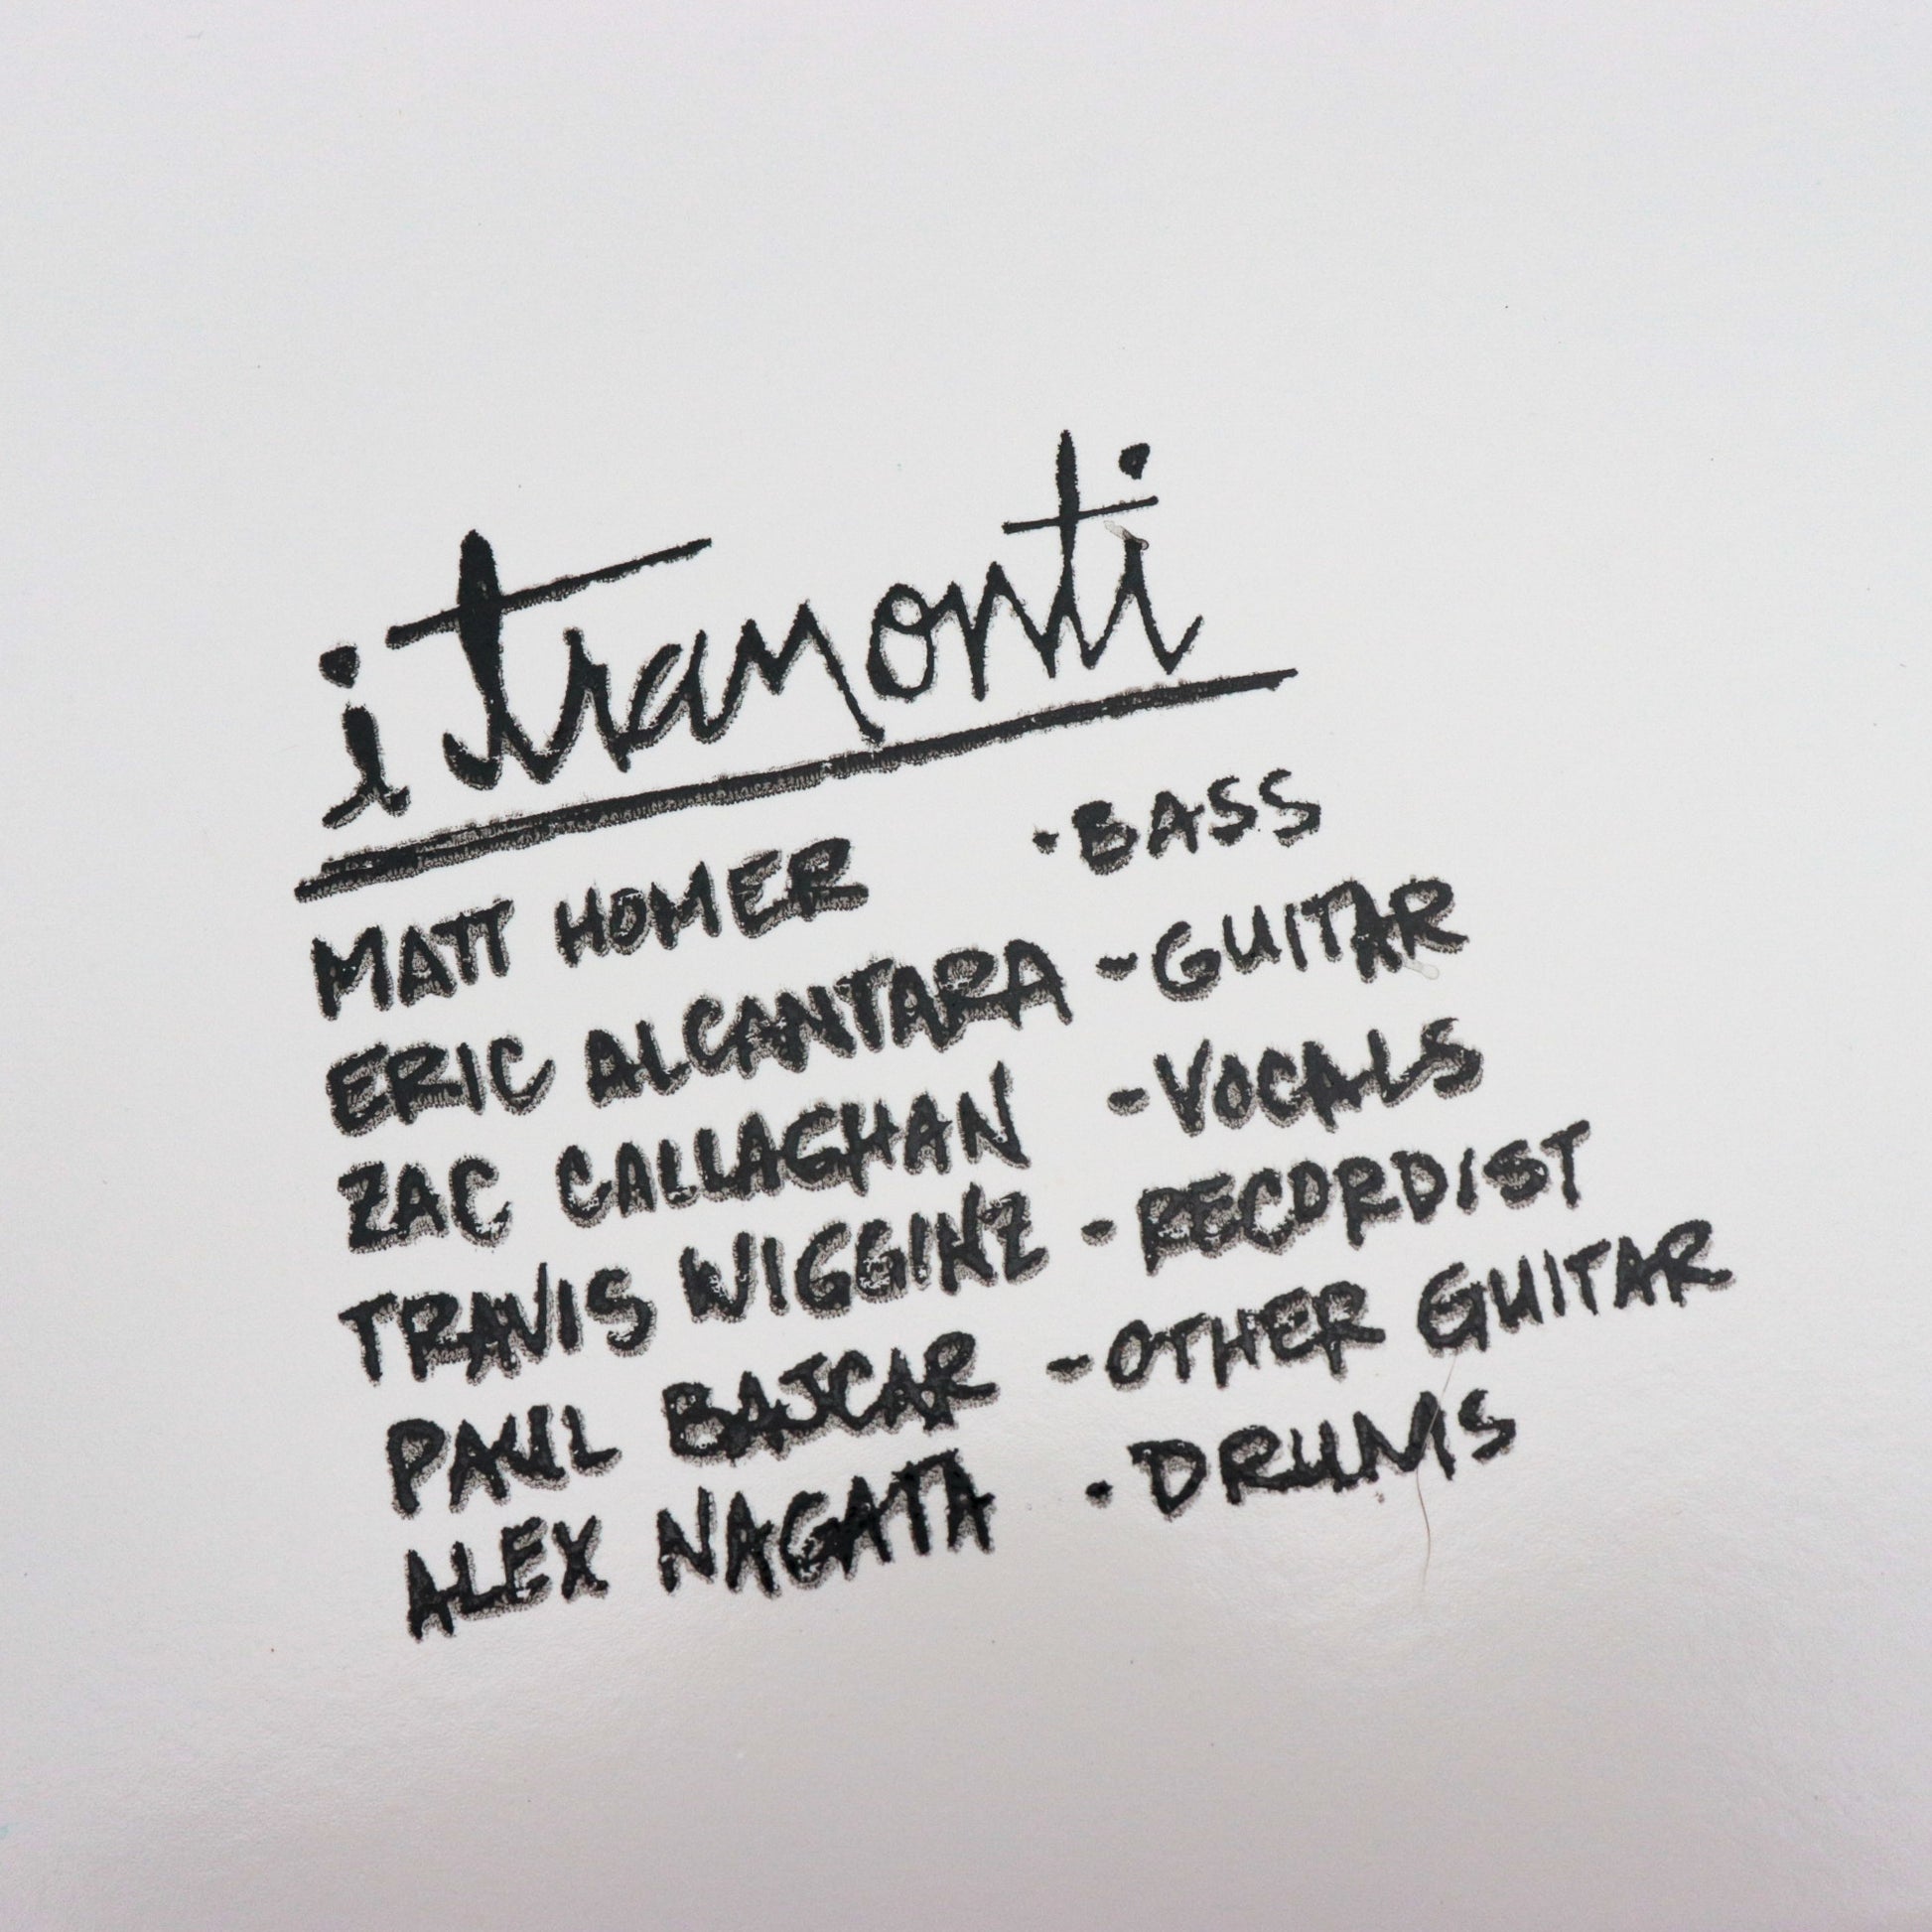 i tramonti
MATT HOMER - BASS
ERIC ALCANTARA - GUITAR
ZAC CALLAGHAN - VOCALS
TRAVIS WIGGINZ - RECORDIST
PAUL BAJCAR - OTHER GUITAR
ALEX NAGATA - DRUMS